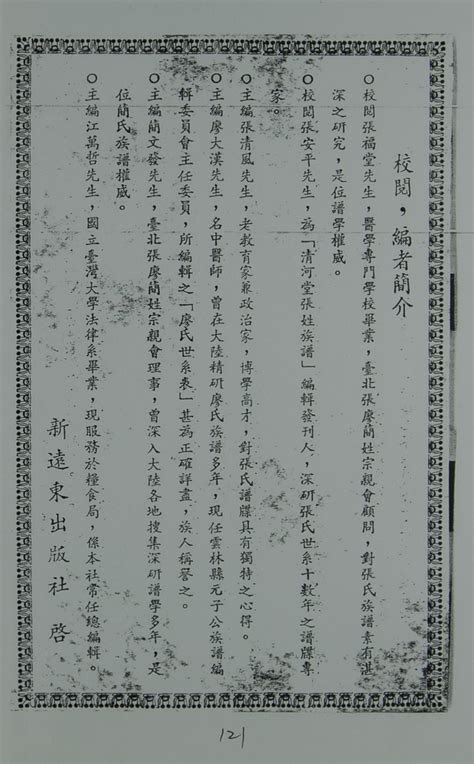 校閱，編者簡介
○校閱張福堂先生，醫學專門學校畢業，臺北張廖簡姓宗親會顧問，對張氏族譜素有湛
深之研究，是位譜學權威。
○校閱張安平先生，為「清河堂張姓族譜」編輯發刊人，深研張氏世系十數年之譜牒專
家。
○主編張清風先生，老教育家兼政治家，博學高才，對張氏譜牒具有獨特之心得。
○主編廖大漢先生，名中醫師，曾在大陸精研廖氏族譜多年，現任雲林縣元子公族譜編
輯委員會主任委員，所編輯之「廖氏世系表」甚為正確詳盡，族人稱譽之。
○主編簡文發先生，臺北張廖簡姓宗親會理事，曾深入大陸各地搜集深研譜學多年，是
位簡氏族譜權威。
○主編江萬哲先生，國立臺灣大學法律系畢業，現服務於糧食局，係本社常任總編輯。
新遠東出版社 啓
121